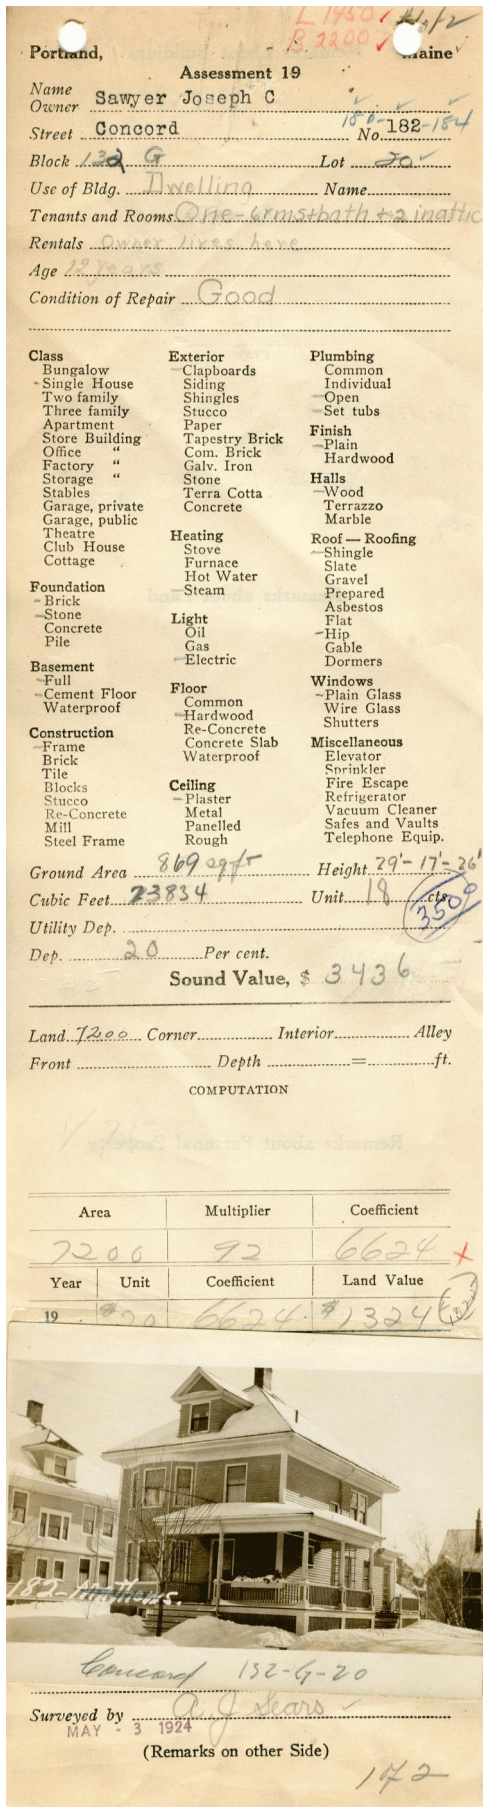 L 1950 ✓
B 2200 ✓
Portland, Maine
Assessment 19
Name
Owner Sawyer Joseph C
Street Concord No. 180-182-184
Block 132 G Lot 20
Use of Bldg. Dwelling Name
Tenants and Rooms One-6rms+bath+2 inattic
Rentals Owner lives here
Age 12 years
Condition of Repair Good
Class
Bungalow
Single House
Two family
Three family
Apartment
Store Building
Office "
Factory "
Storage "
Stables
Garage, private
Garage, public
Theatre
Club House
Cottage
Foundation
Brick
Stone
Concrete
Pile
Basement
Full
Cement Floor
Waterproof
Construction
Frame
Brick
Tile
Blocks
Stucco
Re-Concrete
Mill
Steel Frame
Exterior
Clapboards
Siding
Shingles
Stucco
Paper
Tapestry Brick
Com. Brick
Galv. Iron
Stone
Terra Cotta
Concrete
Heating
Stove
Furnace
Hot Water
Steam
Light
Oil
Gas
Electric
Floor
Common
Hardwood
Re-Concrete
Concrete Slab
Waterproof
Ceiling
Plaster
Metal
Panelled
Rough
Plumbing
Common
Individual
Open
Set tubs
Finish
Plain
Hardwood
Halls
Wood
Terrazzo
Marble
Roof — Roofing
Shingle
Slate
Gravel
Prepared
Asbestos
Flat
Hip
Gable
Dormers
Windows
Plain Glass
Wire Glass
Shutters
Miscellaneous
Elevator
Sprinkler
Fire Escape
Refrigerator
Vacuum Cleaner
Safes and Vaults
Telephone Equip.
Ground Area 869 sq ft Height 29'-17'-26'
Cubic Feet 23834 Unit 18 cts.
3500
Utility Dep.
Dep. 20 Per cent.
Sound Value, $ 3436
Land 7200 Corner Interior Alley
Front Depth = ft.
COMPUTATION
Area Multiplier Coefficient
7200 92 6624 x
Year Unit Coefficient Land Value
19 $20 6624 $1324
182-
Concord 132-G-20
Surveyed by A. J Sears
MAY - 3 1924
(Remarks on other Side)
172